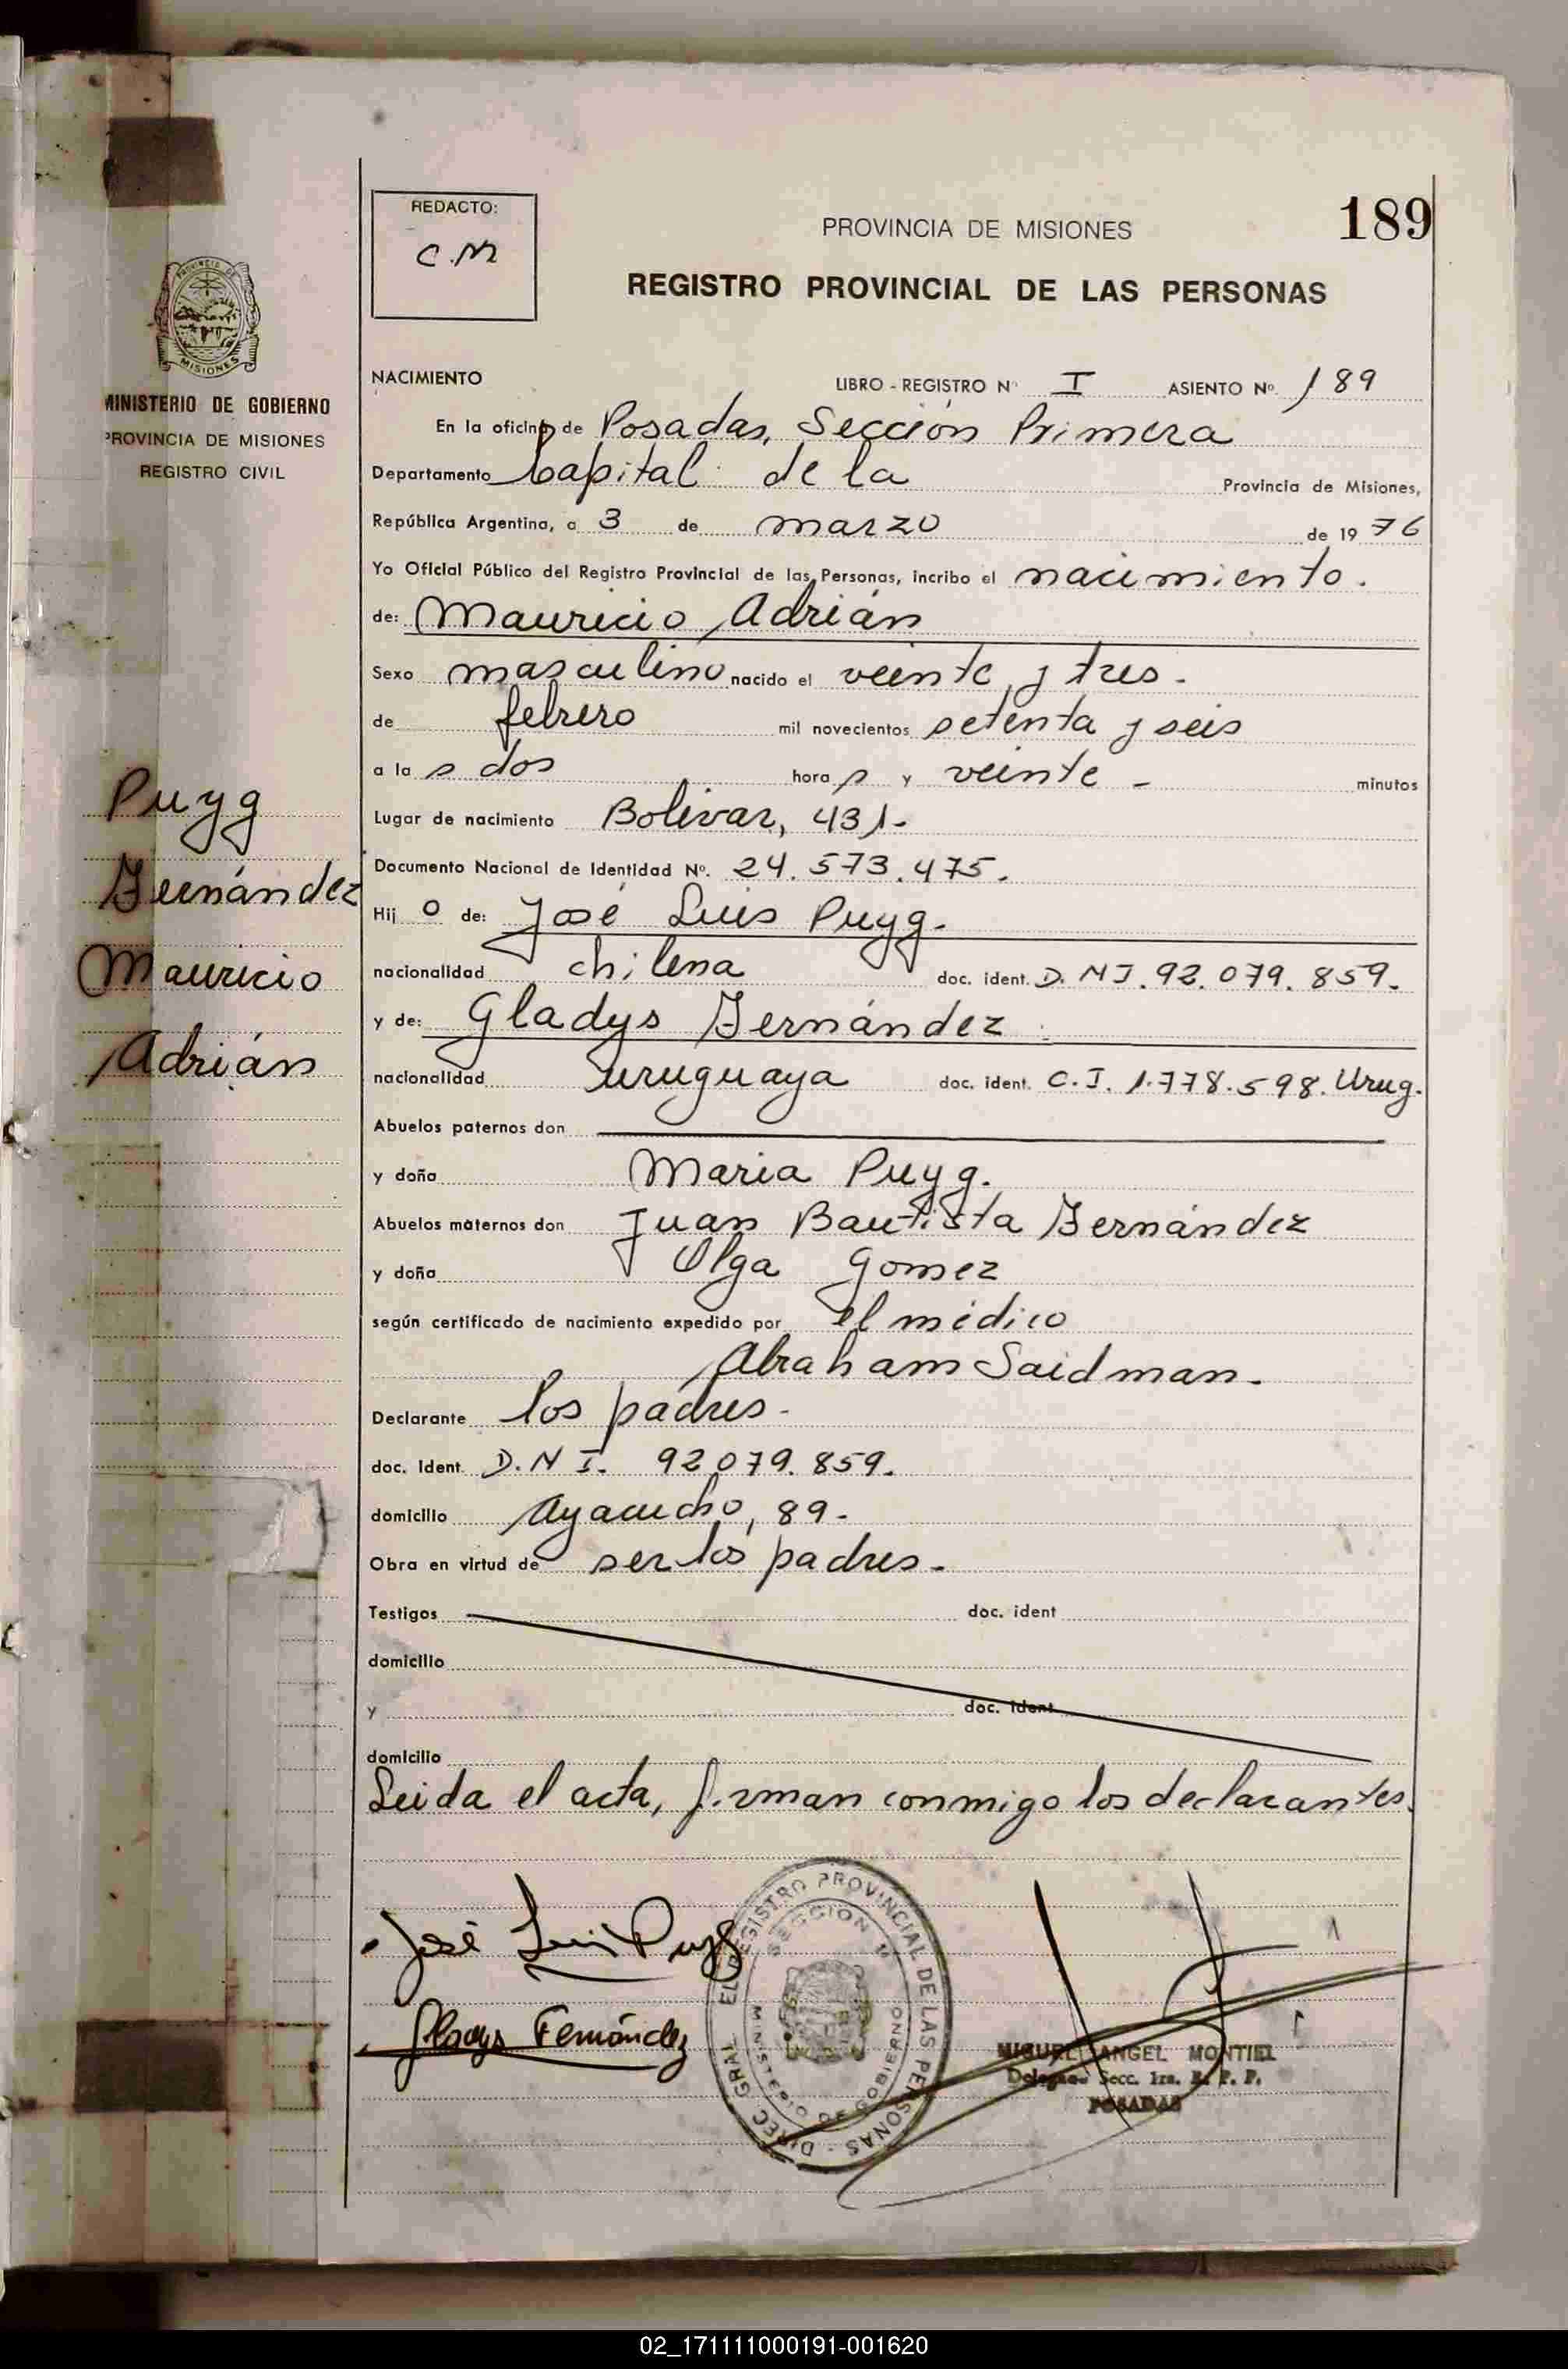 REDACTO:
C.M
PROVINCIA DE MISIONES
189
REGISTRO PROVINCIAL DE LAS PERSONAS
PROVINCIA DE
MISIONES
MINISTERIO DE GOBIERNO
PROVINCIA DE MISIONES
REGISTRO CIVIL
NACIMIENTO LIBRO - REGISTRO Nº I ASIENTO Nº 189
En la oficina de Posadas, Sección Primera
Departamento Capital de la Provincia de Misiones,
República Argentina, a 3 de marzo de 1976
Yo Oficial Público del Registro Provincial de las Personas, incribo el nacimiento.
de: Mauricio Adrián
Sexo masculino nacido el veinte y tres.
de febrero mil novecientos setenta y seis
a las dos horas y veinte - minutos
Lugar de nacimiento Bolívar, 431.
Documento Nacional de Identidad Nº. 24.573.475.
Hijo de: José Luis Puyg.
nacionalidad chilena doc. ident. D.N.I. 92.079.859.
y de: Gladys Fernández
nacionalidad uruguaya doc. ident. C.I. 1.778.598. Urug.
Abuelos paternos don
y doña Maria Puyg.
Abuelos maternos don Juan Bautista Fernández
y doña Olga Gomez
según certificado de nacimiento expedido por el médico
Abraham Saidman.
Declarante los padres.
doc. Ident. D.N.I. 92.079.859.
domicilio Ayacucho, 89.
Obra en virtud de ser los padres.
Testigos doc. ident
domicilio
y doc. ident
domicilio
Leida el acta, firman conmigo los declarantes.
Puyg
Fernández
Mauricio
Adrián
José Luis Puyg
Gladys Fernández
DIREC. GRAL. EL REGISTRO PROVINCIAL DE LAS PERSONAS
SECCION 1ª
MINISTERIO DE GOBIERNO
MIGUEL ANGEL MONTIEL
Delegado Secc. 1ra. R. P. P.
POSADAS
02_171111000191-001620